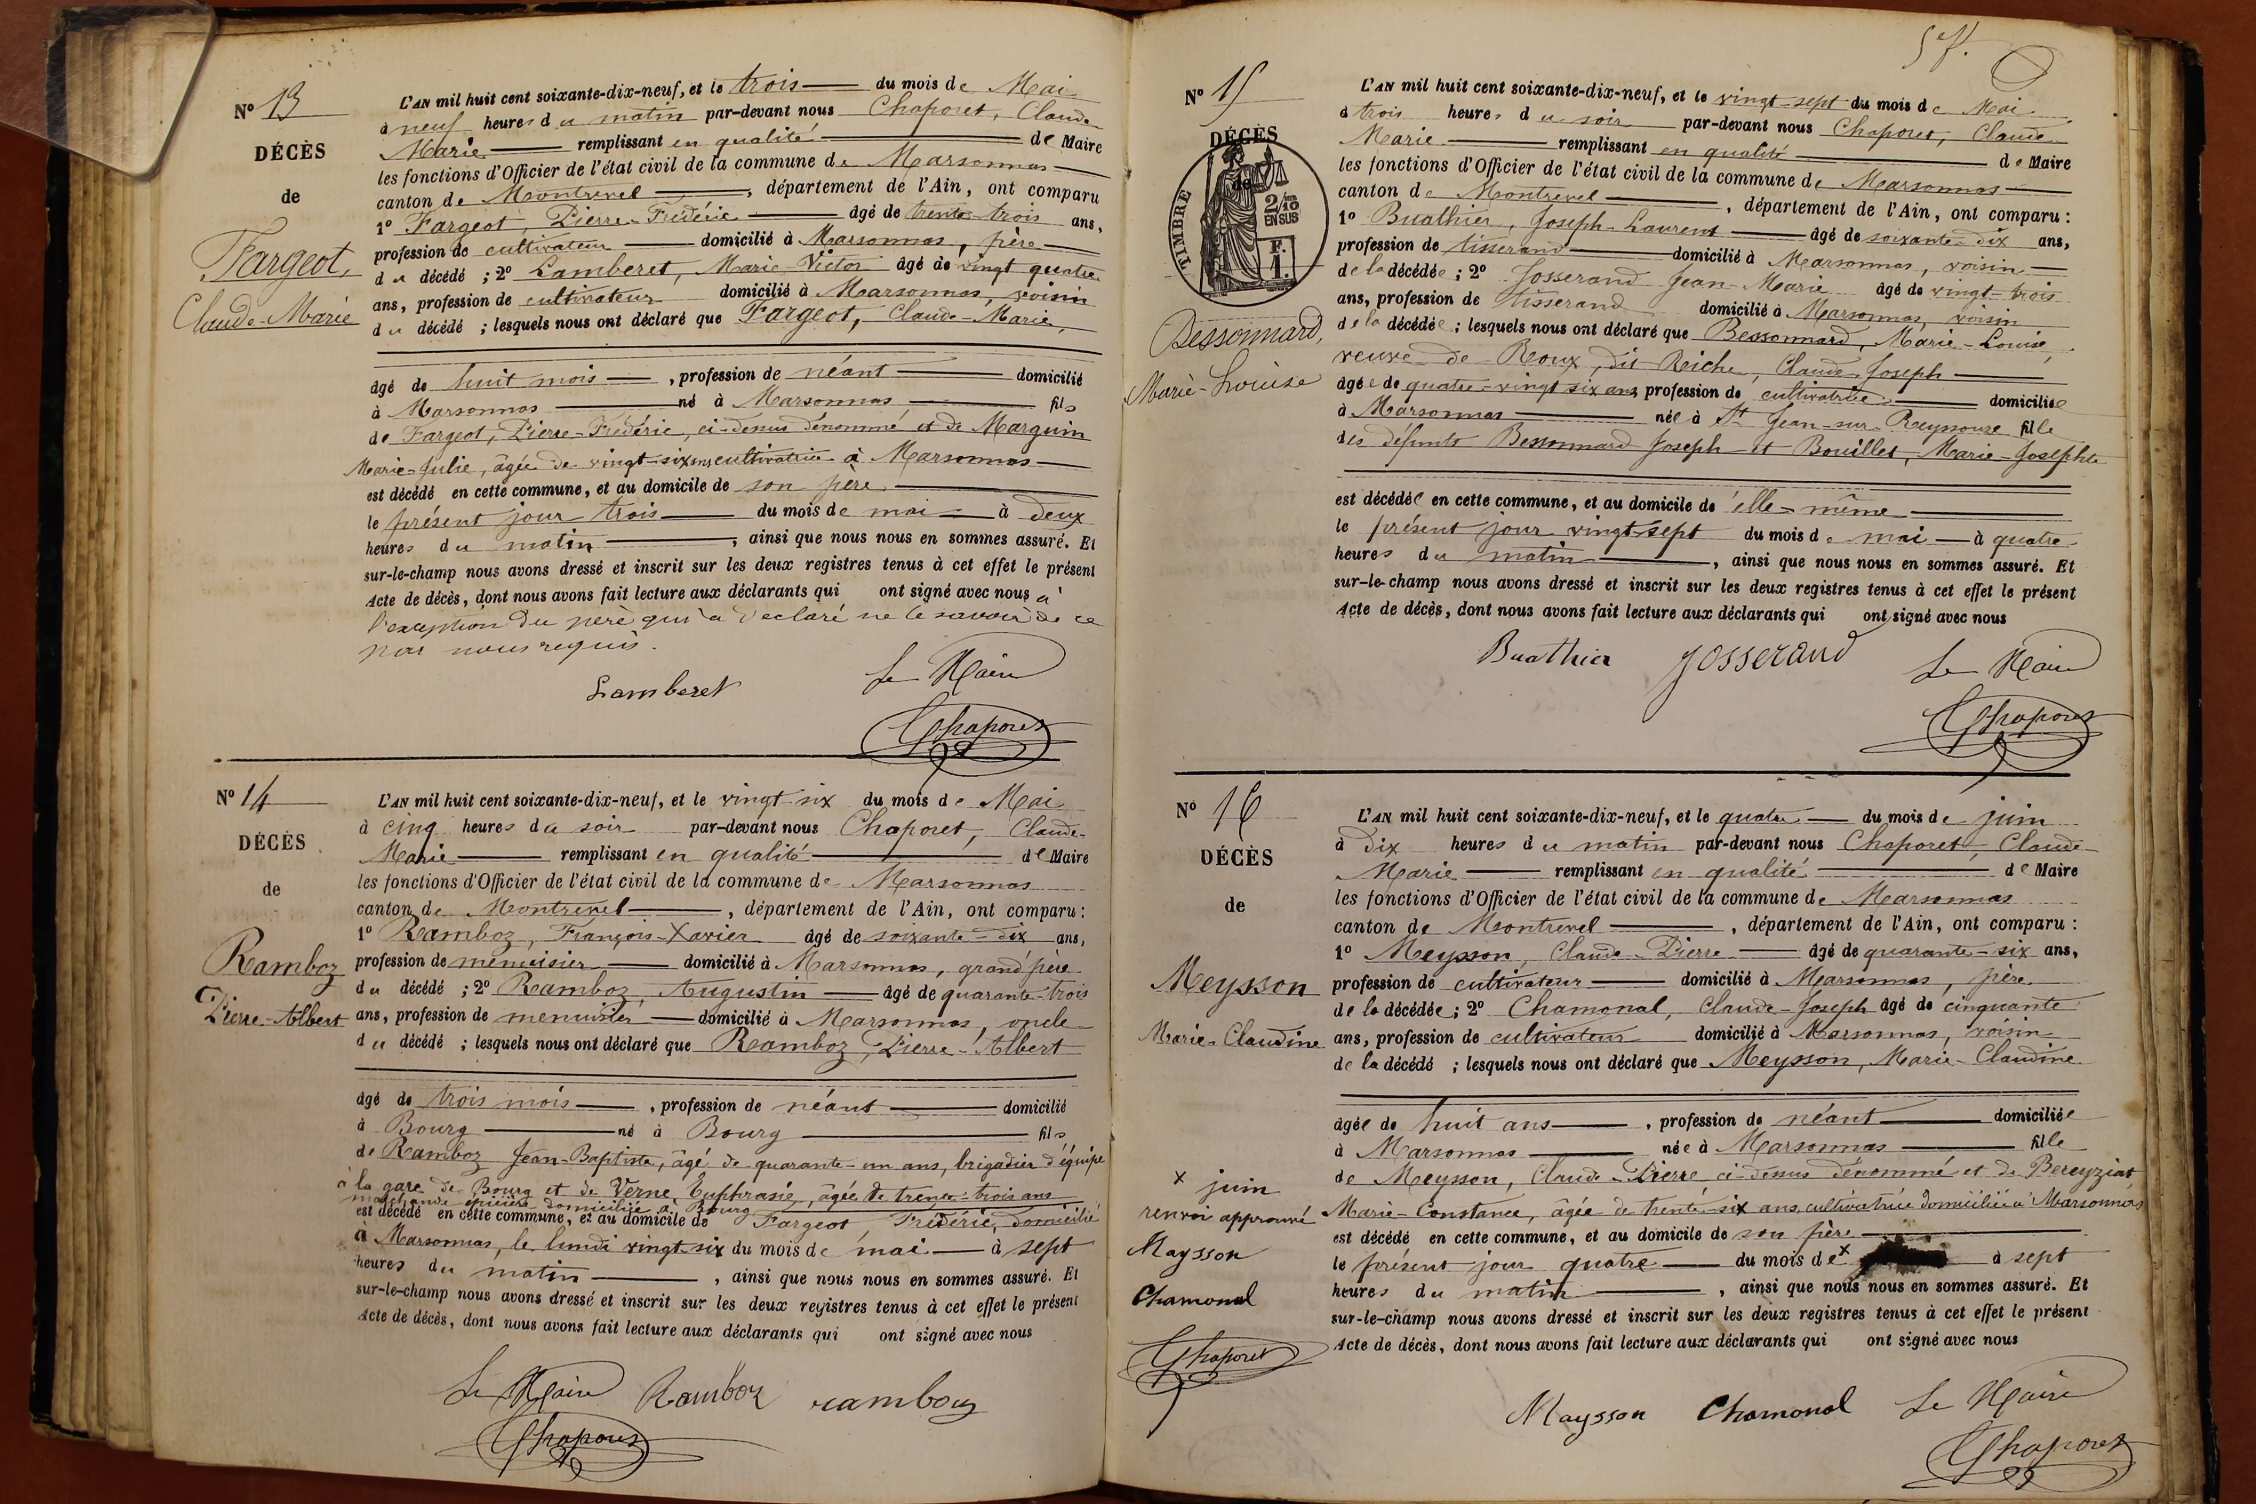 Nº 13
DÉCÈS
de
Fargeot,
Claude-Marie
L'AN mil huit cent soixante-dix-neuf, et le trois du mois de Mai
à neuf heures du matin par-devant nous Chaporet, Claude
Marie remplissant en qualité de Maire
les fonctions d'Officier de l'état civil de la commune de Marsonnas
canton de Montrevel, département de l'Ain, ont comparu
1º Fargeot, Pierre-Frédéric âgé de trente-trois ans,
profession de cultivateur domicilié à Marsonnas, père
du décédé ; 2º Lamberet, Marie-Victor âgé de vingt quatre
ans, profession de cultivateur domicilié à Marsonnas, voisin
du décédé ; lesquels nous ont déclaré que Fargeot, Claude-Marie,
âgé de huit mois, profession de néant domicilié
à Marsonnas né à Marsonnas fils
de Fargeot, Pierre-Frédéric, ci-dessus dénommé et de Marguin
Marie-Julie, âgée de vingt-six ans cultivatrice à Marsonnas
est décédé en cette commune, et au domicile de son père
le présent jour trois du mois de mai à deux
heures du matin, ainsi que nous nous en sommes assuré. Et
sur-le-champ nous avons dressé et inscrit sur les deux registres tenus à cet effet le présent
Acte de décès, dont nous avons fait lecture aux déclarants qui ont signé avec nous à
l'exception du père qui a déclaré ne le savoir de ce
par nous requis.
Lamberet Le Maire
Chaporet
Nº 14
DÉCÈS
de
Ramboz
Pierre-Albert
L'AN mil huit cent soixante-dix-neuf, et le vingt-six du mois de Mai
à cinq heures du soir par-devant nous Chaporet, Claude-
Marie remplissant en qualité de Maire
les fonctions d'Officier de l'état civil de la commune de Marsonnas
canton de Montrevel, département de l'Ain, ont comparu :
1º Ramboz, François-Xavier âgé de soixante-dix ans,
profession de menuisier domicilié à Marsonnas, grand père
du décédé ; 2º Ramboz, Augustin âgé de quarante-trois
ans, profession de menuisier domicilié à Marsonnas, oncle
du décédé ; lesquels nous ont déclaré que Ramboz, Pierre-Albert
âgé de trois mois, profession de néant domicilié
à Bourg né à Bourg fils
de Ramboz Jean-Baptiste, âgé de quarante-un ans, brigadier d'équipe
à la gare de Bourg et de Verne, Euphrasie, âgée de trente-trois ans
marchande épicière domiciliée à Bourg
est décédé en cette commune, et au domicile de Fargeot Frédéric, domicilié
à Marsonnas, le lundi vingt-six du mois de mai à sept
heures du matin, ainsi que nous nous en sommes assuré. Et
sur-le-champ nous avons dressé et inscrit sur les deux registres tenus à cet effet le présent
Acte de décès, dont nous avons fait lecture aux déclarants qui ont signé avec nous
Le Maire Ramboz ramboz
Chaporet
Nº 15
DÉCÈS
de
TIMBRE
2/10 EN SUS
F. 1.
Bessonnard,
Marie-Louise
L'AN mil huit cent soixante-dix-neuf, et le vingt-sept du mois de Mai
à trois heures du soir par-devant nous Chaporet, Claude
Marie remplissant en qualité de Maire
les fonctions d'Officier de l'état civil de la commune de Marsonnas
canton de Montrevel, département de l'Ain, ont comparu :
1º Buathier, Joseph-Laurent âgé de soixante-dix ans,
profession de tisserand domicilié à Marsonnas, voisin
de la décédée ; 2º Josserand Jean-Marie âgé de vingt-trois
ans, profession de tisserand domicilié à Marsonnas, voisin
de la décédée ; lesquels nous ont déclaré que Bessonnard, Marie-Louise,
veuve de Roux, dit Riche, Claude-Joseph
âgée de quatre-vingt six ans, profession de cultivatrice domiciliée
à Marsonnas née à St Jean-sur-Reyssouze fille
des défunts Bessonnard Joseph et Bouillet, Marie-Josephte
est décédée en cette commune, et au domicile de elle-même
le présent jour vingt-sept du mois de mai à quatre
heures du matin, ainsi que nous nous en sommes assuré. Et
sur-le-champ nous avons dressé et inscrit sur les deux registres tenus à cet effet le présent
Acte de décès, dont nous avons fait lecture aux déclarants qui ont signé avec nous
Buathier Josserand Le Maire
Chaporet
Nº 16
DÉCÈS
de
Meysson
Marie-Claudine
x juin
renvoi approuvé
Maysson
Chamonal
Chaporet
L'AN mil huit cent soixante-dix-neuf, et le quatre du mois de juin
à dix heures du matin par-devant nous Chaporet, Claude-
Marie remplissant en qualité de Maire
les fonctions d'Officier de l'état civil de la commune de Marsonnas
canton de Montrevel, département de l'Ain, ont comparu :
1º Meysson, Claude-Pierre âgé de quarante-six ans,
profession de cultivateur domicilié à Marsonnas, père
de la décédée ; 2º Chamonal, Claude-Joseph âgé de cinquante
ans, profession de cultivateur domicilié à Marsonnas, voisin
de la décédé ; lesquels nous ont déclaré que Meysson, Marie-Claudine
âgée de huit ans, profession de néant domiciliée
à Marsonnas née à Marsonnas fille
de Meysson, Claude-Pierre ci-dessus dénommé et de Bereyziat
Marie-Constance, âgée de trente-six ans, cultivatrice domiciliée à Marsonnas
est décédé en cette commune, et au domicile de son père
le présent jour quatre du mois de x à sept
heures du matin, ainsi que nous nous en sommes assuré. Et
sur-le-champ nous avons dressé et inscrit sur les deux registres tenus à cet effet le présent
Acte de décès, dont nous avons fait lecture aux déclarants qui ont signé avec nous
Maysson Chamonal Le Maire
Chaporet